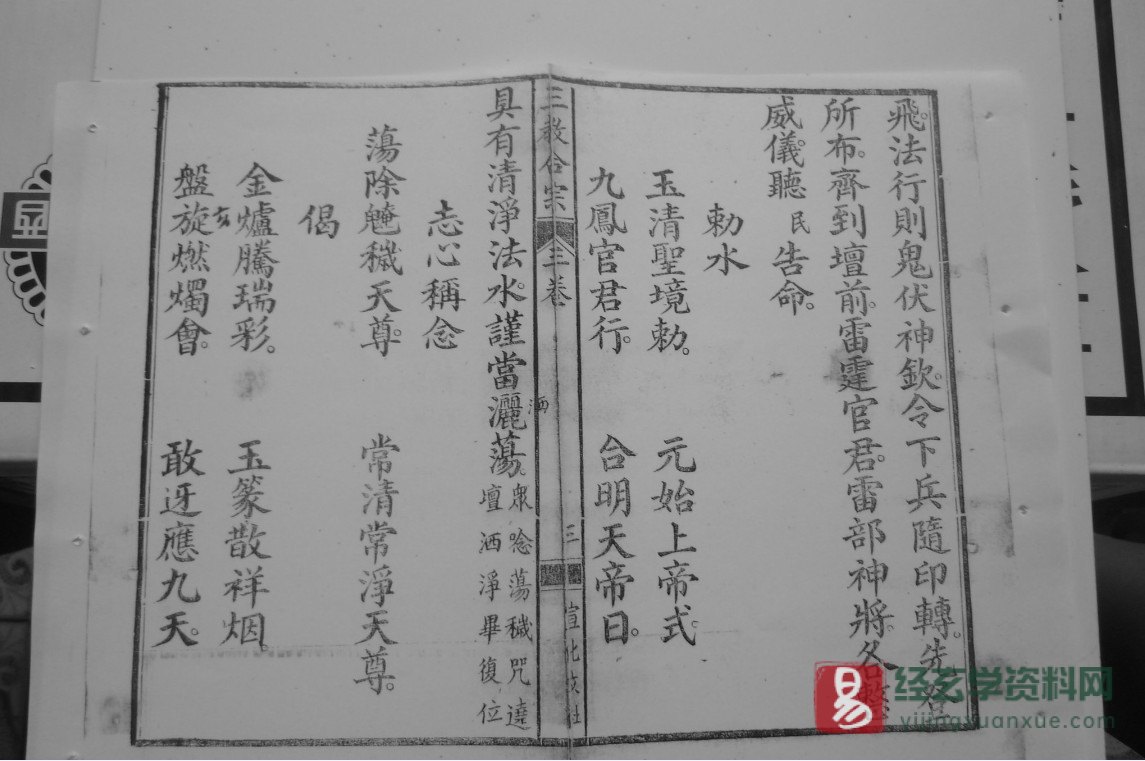 飛。法行則鬼伏神欽。令下兵隨印轉。先
所布。齊到壇前。雷霆官君。雷部神將。各
威儀。聽民告命。
勅水
玉清聖境勅。 元始上帝式。
九鳳官君行。 台明天帝日。
三教合宗 三卷 三 宣化
具有清淨法水。謹當灑蕩。衆唸蕩穢咒遶
壇洒淨畢復位
洒
志心稱念
蕩除魑穢天尊。 常清常淨天尊。
偈
金爐騰瑞彩。 玉篆散祥烟。
盤旋燃燭會。 敢迓應九天。
易
经玄学资料网
yijingxuanxue.com